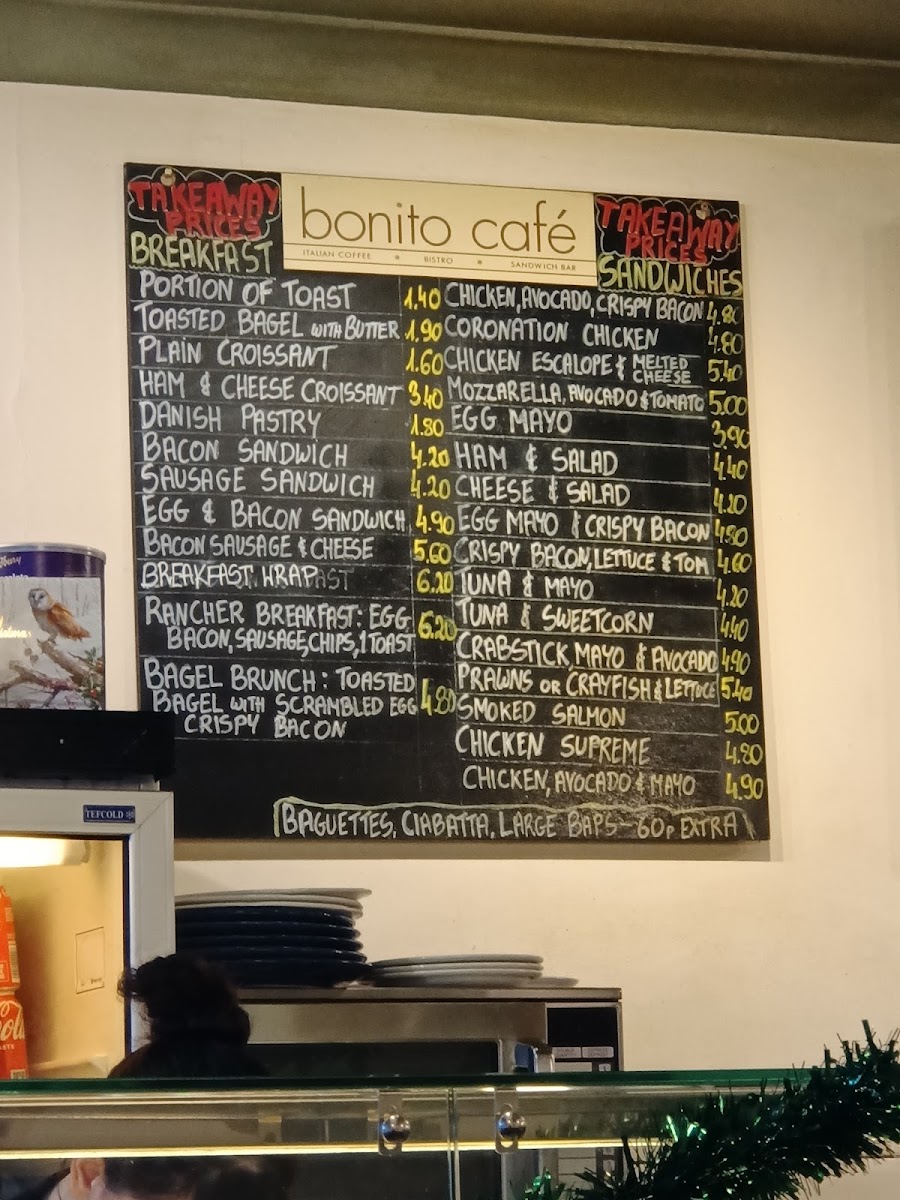 TAKEAWAY
PRICES
BREAKFAST
bonito café
ITALIAN COFFEE • BISTRO • SANDWICH BAR
TAKEAWAY
PRICES
SANDWICHES
PORTION OF TOAST 1.40
TOASTED BAGEL WITH BUTTER 1.90
PLAIN CROISSANT 1.60
HAM & CHEESE CROISSANT 3.40
DANISH PASTRY 1.80
BACON SANDWICH 4.20
SAUSAGE SANDWICH 4.20
EGG & BACON SANDWICH 4.90
BACON SAUSAGE & CHEESE 5.60
BREAKFAST WRAP 6.20
RANCHER BREAKFAST: EGG 6.20
BACON, SAUSAGE, CHIPS, 1 TOAST
BAGEL BRUNCH: TOASTED
BAGEL WITH SCRAMBLED EGG 4.80
CRISPY BACON
CHICKEN, AVOCADO, CRISPY BACON 4.80
CORONATION CHICKEN 4.80
CHICKEN ESCALOPE & MELTED CHEESE 5.40
MOZZARELLA, AVOCADO & TOMATO 5.00
EGG MAYO 3.90
HAM & SALAD 4.40
CHEESE & SALAD 4.20
EGG MAYO & CRISPY BACON 4.80
CRISPY BACON, LETTUCE & TOM 4.60
TUNA & MAYO 4.20
TUNA & SWEETCORN 4.40
CRABSTICK, MAYO & AVOCADO 4.90
PRAWNS OR CRAYFISH & LETTUCE 5.40
SMOKED SALMON 5.00
CHICKEN SUPREME 4.80
CHICKEN, AVOCADO & MAYO 4.90
BAGUETTES, CIABATTA, LARGE BAPS - 60p EXTRA
TEFCOLD